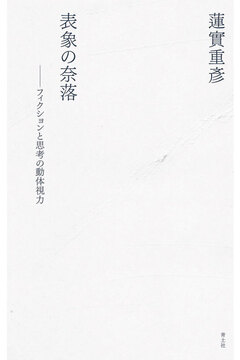 蓮實重彥
表象の奈落
——フィクションと思考の動体視力
青土社